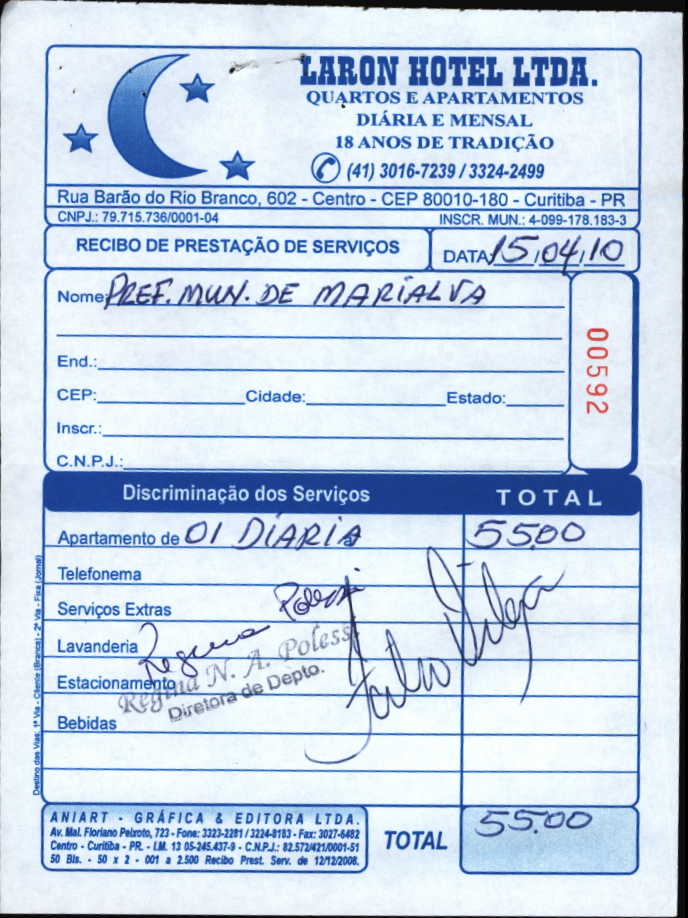 LARON HOTEL LTDA.
QUARTOS E APARTAMENTOS
DIÁRIA E MENSAL
18 ANOS DE TRADIÇÃO
(41) 3016-7239 / 3324-2499
Rua Barão do Rio Branco, 602 - Centro - CEP 80010-180 - Curitiba - PR
CNPJ.: 79.715.736/0001-04 INSCR. MUN.: 4-099-178.183-3
RECIBO DE PRESTAÇÃO DE SERVIÇOS DATA 15/04/10
Nome: PREF. MUN. DE MARIALVA
00592
End.:
CEP: Cidade: Estado:
Inscr.:
C.N.P.J.:
Discriminação dos Serviços TOTAL
Apartamento de 01 DIARIA 55.00
Telefonema
Serviços Extras
Lavanderia
Estacionamento
Bebidas
Regina Polessi
Regina N. A. Polessi
Diretora de Depto.
Destino das Vias: 1ª Via - Cliente (Branca) - 2ª Via - Fixa (Jornal)
ANIART - GRÁFICA & EDITORA LTDA.
Av. Mal. Floriano Peixoto, 723 - Fone: 3323-2281 / 3224-8183 - Fax: 3027-6482
Centro - Curitiba - PR. - I.M. 13 05-245.437-9 - C.N.P.J.: 82.572/421/0001-51
50 Bls. - 50 x 2 - 001 a 2.500 Recibo Prest. Serv. de 12/12/2008.
TOTAL 55.00